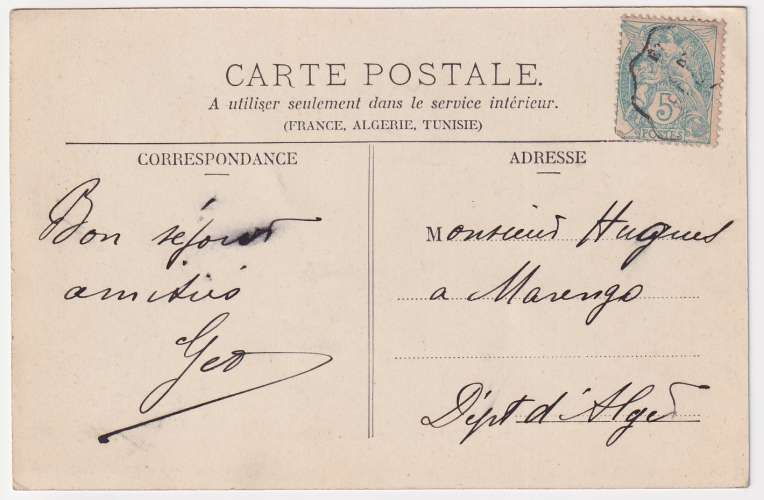 CARTE POSTALE.
A utiliser seulement dans le service intérieur.
(FRANCE, ALGERIE, TUNISIE)
CORRESPONDANCE
ADRESSE
Bon séjour
amitiés
Geo
Monsieur Hugues
a Marengo
Dépt d'Alger
5
POSTES